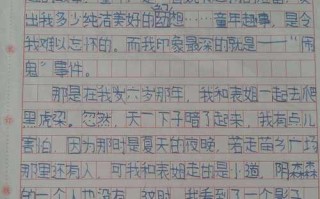 出我多少纯洁美好的回忆……童年趣事,是令
我难以忘怀的。而我印象最深的就是——“闹
鬼”事件。
那是在我岁六岁那年,我和表姐一起去爬
黑虎梁。忽然,天一下子暗了起来,我有点儿
害怕,因为那时是夏天的夜晚,若走苗乡广场
那里还有人,可我和表姐走的是小道,阴森森
的一个人也没有,这时,我看到了一个影子,